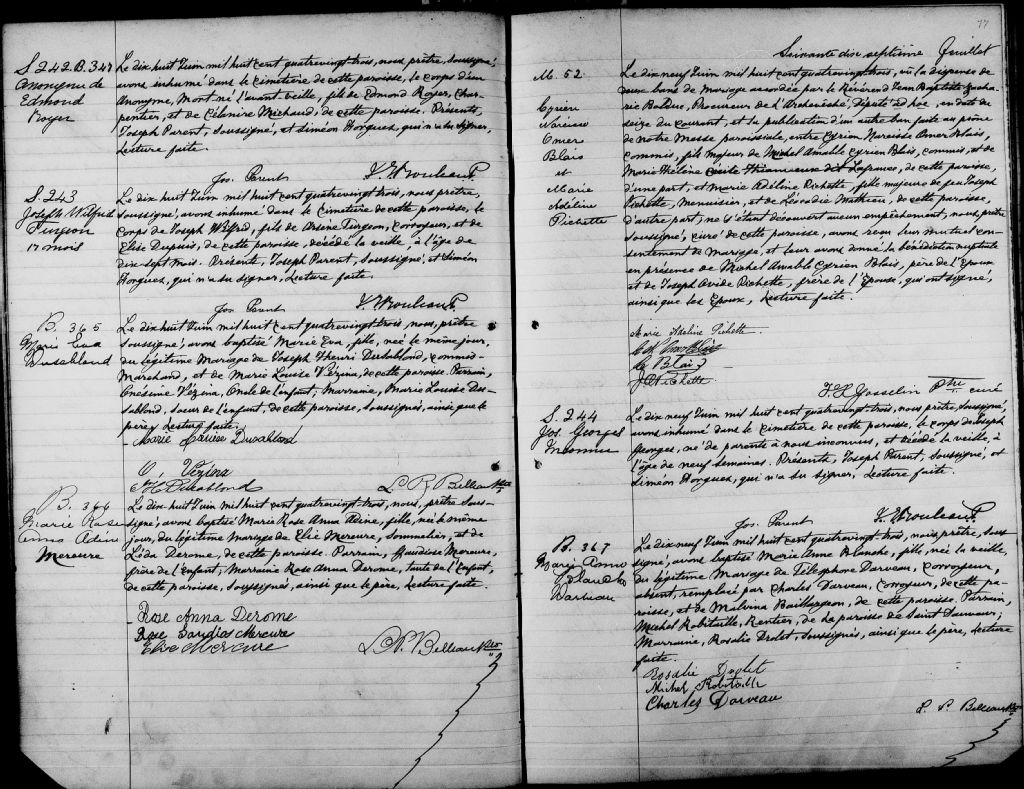 S. 242. B. 347
Anonyme de
Edmond
Royer
Le dix huit Juin mil huit cent quatrevingt trois, nous prêtre, soussigné,
avons inhumé dans le cimetière de cette paroisse, le corps d'un
Anonyme, Mort-né l'avant veille, fils de Edmond Royer, Char-
pentier, et de Célanire Michaud, de cette paroisse. Présents,
Joseph Parent, soussigné, et Siméon Horgues, qui n'a su signer,
Lecture faite.
Jos. Parent
S. 243
Joseph Wilfrid
Turgeon
17 mois
Le dix huit Juin mil huit cent quatrevingt trois, nous prêtre,
soussigné, avons inhumé dans le cimetière de cette paroisse, le
corps de Joseph Wilfrid, fils de Arsène Turgeon, corroyeur, et de
Elise Dupuis, de cette paroisse, décédé la veille, à l'âge de
dix sept mois. Présents, Joseph Parent, soussigné, et Siméon
Horgues, qui n'a su signer, Lecture faite.
Jos Parent
B. 365
Marie Eva
Dusablond
Le dix huit Juin mil huit cent quatrevingt trois, nous, prêtre
soussigné, avons baptisé Marie Eva, fille, née le même jour,
du légitime Mariage de Joseph Henri Dusablond, commis-
Marchand, et de Marie Louise Vézina, de cette paroisse. Parrain,
Onésime Vézina, Oncle de l'enfant; Marraine, Marie Louise Du-
sablond, soeur de l'enfant, de cette paroisse, soussignés, ainsi que le
père, Lecture faite.
Marie Louise Dusablond
O. Vezina
J H Dusablond
L P Belleau Ptre
B. 366
Marie Rose
Anna Adine
Mercure
Le dix huit Juin mil huit cent quatrevingt trois, nous, prêtre sous-
signé, avons baptisé Marie Rose Anna Adine, fille, née le même
jour, du légitime Mariage de Elie Mercure, Sommelier, et de
Léda Derome, de cette paroisse. Parrain, Gaudiose Mercure,
frère de l'Enfant; Marraine Rose Anna Derome, tante de l'Enfant,
de cette paroisse, soussignés, ainsi que le père, Lecture faite.
Rose Anna Derome
Elie Mercure
L. P. Belleau Ptre
77
Soixante dix septième feuillet
M. 52
Cyrien
Narcisse
Omer
Blais
et
Marie
Adéline
Pichette
Le dix neuf Juin mil huit cent quatrevingt trois, vû la dispense de
deux bans de Mariage accordée par le Révérend Jean Baptiste Zacha-
rie Bolduc, Procureur de l'Archevêché, député ad hoc, en date du
seize du courant, et la publication d'un autre ban faite au prône
de notre Messe paroissiale, entre Cyrien Narcisse Omer Blais,
commis, fils majeur de Michel Amable Cyrien Blais, commis, et de
Marie Hélène Lafrance, de cette paroisse,
d'une part, et Marie Adéline Pichette, fille majeure de feu Joseph
Pichette, Menuisier, et de Léocadie Mathieu, de cette paroisse,
d'autre part, ne s'étant découvert aucun empêchement, nous, prêtre
soussigné, curé de cette paroisse, avons reçu leur mutuel con-
sentement de Mariage, et leur avons donné la bénédiction nuptiale
en présence de Michel Amable Cyrien Blais, père de l'Epoux
et de Joseph Ovide Pichette, frère de l'Epouse, qui ont signé,
ainsi que les Epoux, Lecture faite.
Marie Adeline Pichette
Blais
J O Pichette
Gosselin Ptre curé
S. 244
Jos. Georges
Inconnu
Le dix neuf Juin mil huit cent quatrevingt trois, nous prêtre, soussigné,
avons inhumé dans le cimetière de cette paroisse, le corps de Joseph
Georges, né de parents à nous inconnus, et décédé la veille, à
l'âge de neuf semaines. Présents, Joseph Parent, soussigné, et
Siméon Horgues, qui n'a su signer, Lecture faite.
Jos. Parent
B. 367
Marie Anne
Blanche
Darveau
Le dix neuf Juin, mil huit cent quatrevingt trois, nous, prêtre, sous-
signé, avons baptisé Marie Anne Blanche, fille, née la veille,
du légitime Mariage de Télesphore Darveau, Corroyeur,
absent, remplacé par Charles Darveau, Corroyeur, de cette pa-
roisse, et de Malvina Baillargeon, de cette paroisse. Parrain,
Michel Robitaille, Rentier, de la paroisse de Saint Sauveur;
Marraine, Rosalie Drolet, soussignés, ainsi que le père, Lecture
faite.
Rosalie Drolet
Michel Robitaille
Charles Darveau
L. P. Belleau Ptre